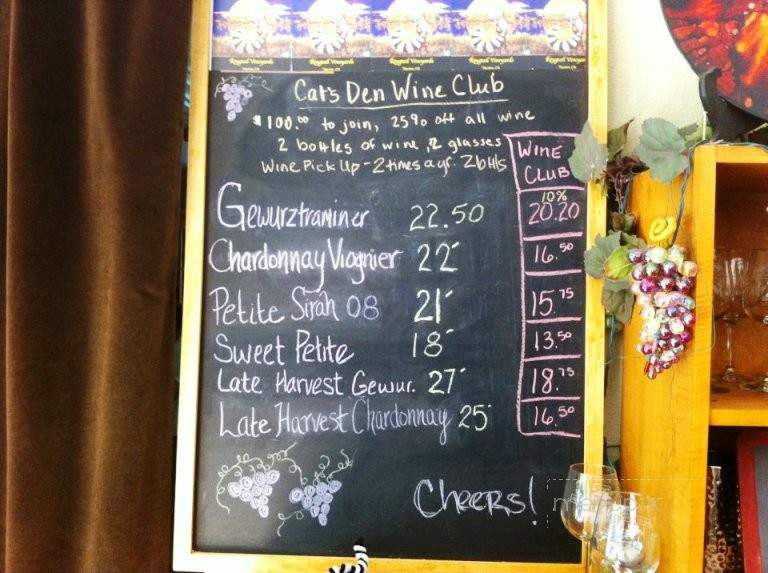 Cat's Den Wine Club
$100.00 to join, 25% off all wine
2 bottles of wine, 2 glasses
Wine Pick Up - 2 times a yr. 2 btls
WINE CLUB
Gewurztraminer 22.50 10% 20.20
Chardonnay Viognier 22 16.50
Petite Sirah 08 21 15.75
Sweet Petite 18 13.50
Late Harvest Gewur. 27 18.75
Late Harvest Chardonnay 25 16.50
Cheers!